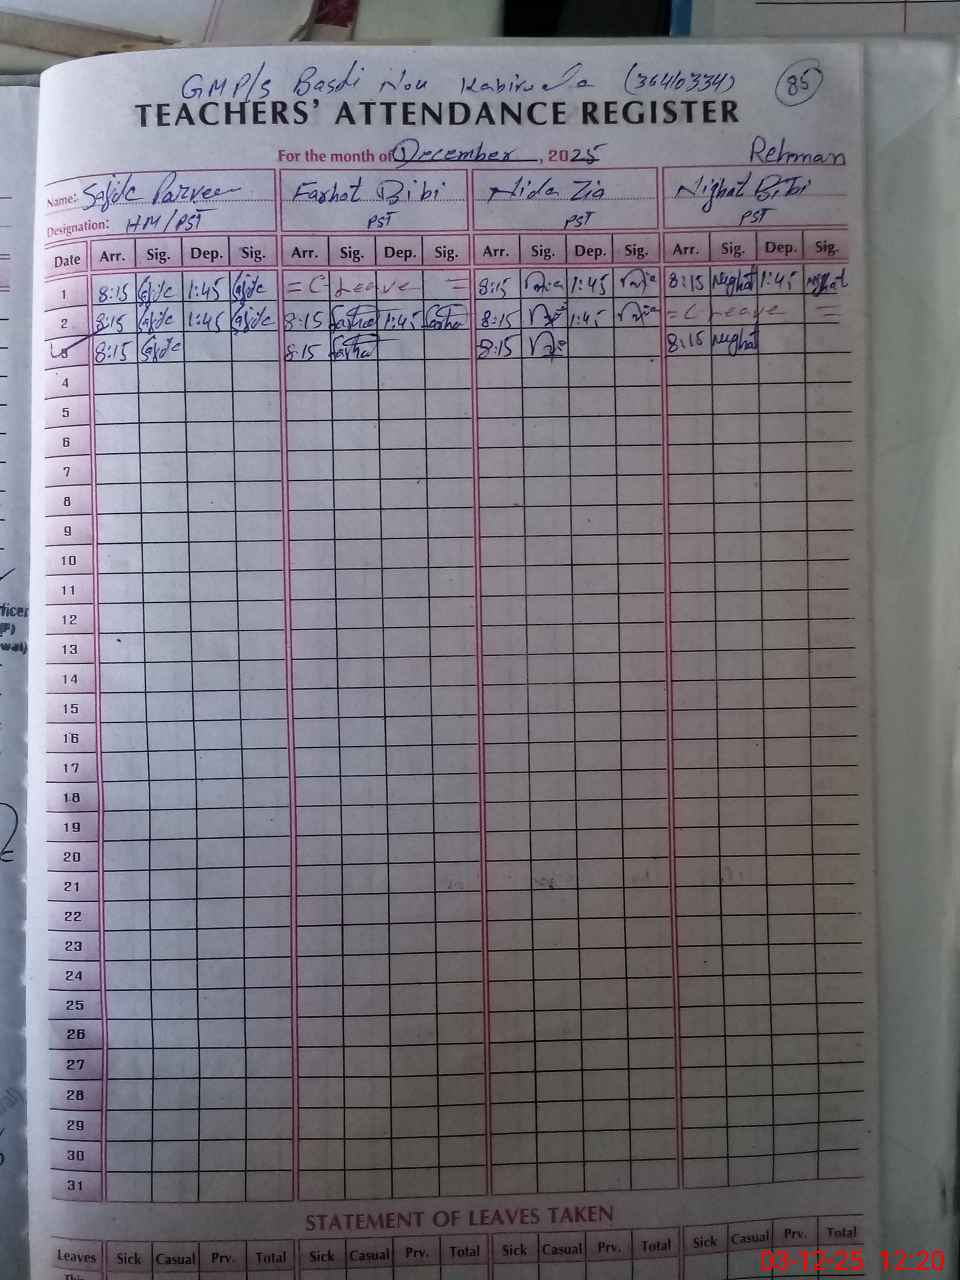 GMP/s Basti Nou Kabirwala (36410334) 85
TEACHERS' ATTENDANCE REGISTER
For the month of December, 2025 Rehman
Name: Sajida Parveen Farhat Bibi Nida Zia Nighat Bibi
Designation: HM/PST PST PST PST
Date Arr. Sig. Dep. Sig. Arr. Sig. Dep. Sig. Arr. Sig. Dep. Sig. Arr. Sig. Dep. Sig.
1 8:15 Sajida 1:45 Sajida = C-Leave = 8:15 1:45 8:15 Nighat 1:45 Nighat
2 8:15 Sajida 1:45 Sajida 8:15 Farhat 1:45 Farhat 8:15 1:45 = C-Leave =
3 8:15 Sajida 8:15 Farhat 8:15 8:15 Nighat
4
5
6
7
8
9
10
11
12
13
14
15
16
17
18
19
20
21
22
23
24
25
26
27
28
29
30
31
STATEMENT OF LEAVES TAKEN
Leaves Sick Casual Prv. Total Sick Casual Prv. Total Sick Casual Prv. Total Sick Casual Prv. Total
This
03-12-25 12:20